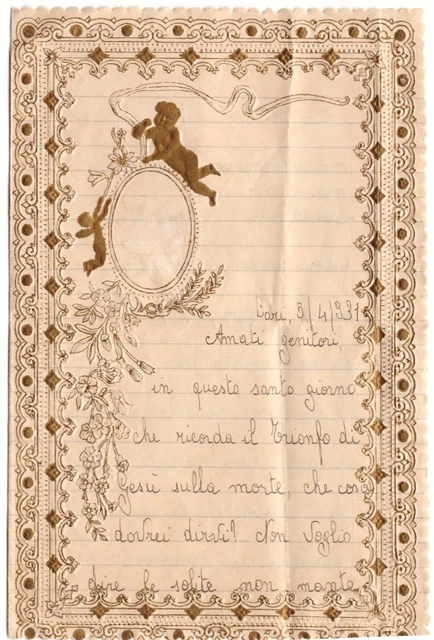 Bari, 5/4/931
Amati genitori,
in questo santo giorno
che ricorda il trionfo di
Gesù sulla morte, che cosa
dovrei dirvi? Non voglio
dire le solite non mante